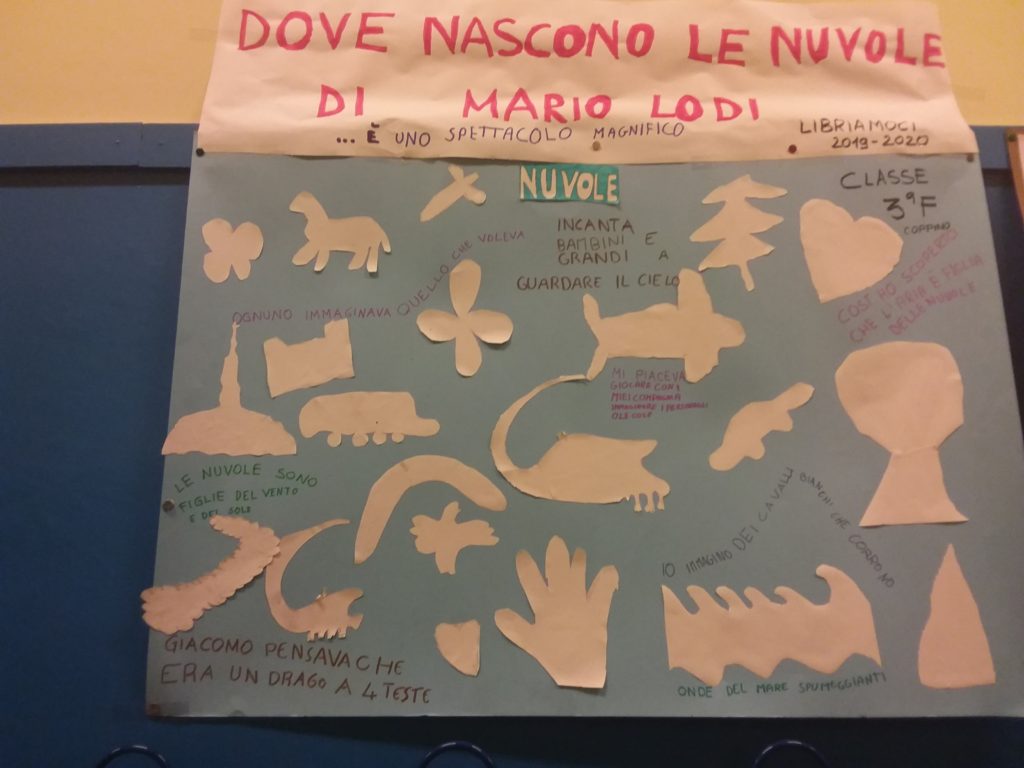 DOVE NASCONO LE NUVOLE
DI MARIO LODI
... È UNO SPETTACOLO MAGNIFICO
LIBRIAMOCI
2019-2020
NUVOLE
CLASSE
3ª F
COPPINO
INCANTA
BAMBINI E
GRANDI A
GUARDARE IL CIELO
OGNUNO IMMAGINAVA QUELLO CHE VOLEVA
COSÌ HO SCOPERTO
CHE L'ARIA È FIGLIA
DELLE NUVOLE
MI PIACEVA
GIOCARE CON I
MIEI COMPAGNI A
IMMAGINARE I PERSONAGGI
LE NUVOLE SONO
FIGLIE DEL VENTO
E DEL SOLE
IO IMMAGINO DEI CAVALLI BIANCHI CHE CORRONO
GIACOMO PENSAVA CHE
ERA UN DRAGO A 4 TESTE
ONDE DEL MARE SPUMEGGIANTI